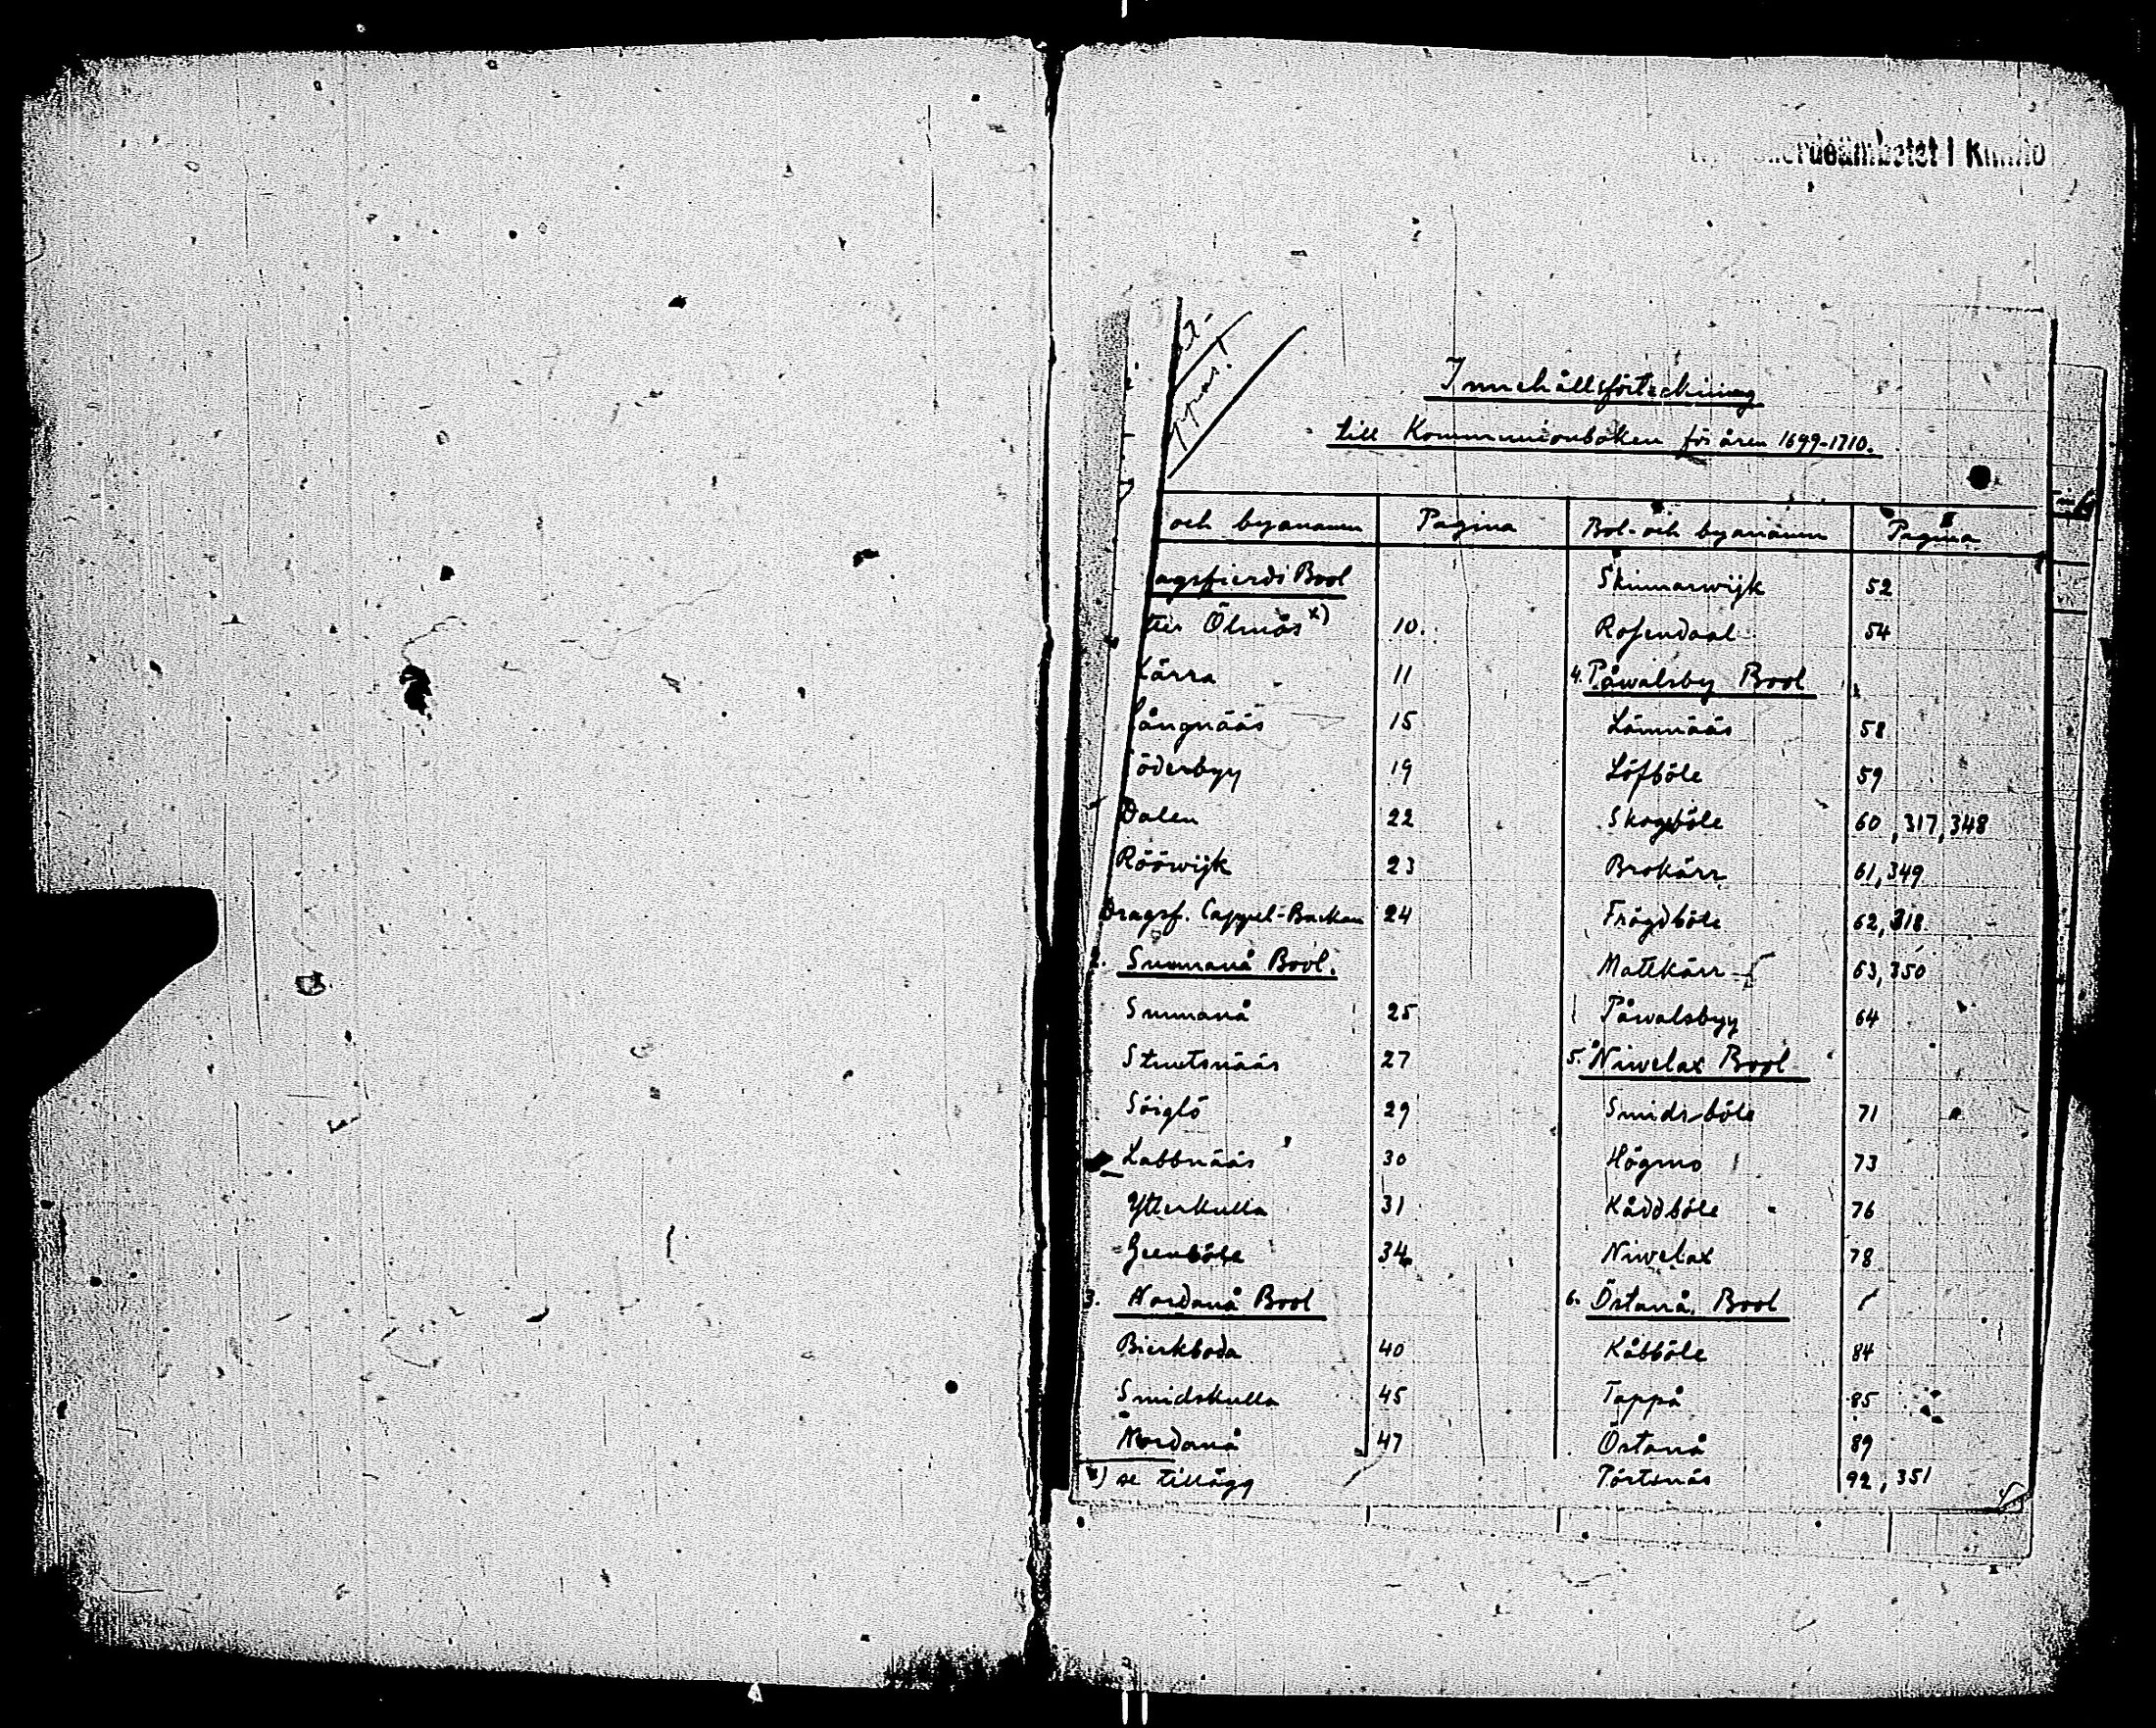 Innehållsförteckning
till Kommunionboken för åren 1699-1710.
och byanamn Pagina Bol- och byanamn Pagina
agsfierds Bool Skinnarwijk 52
tter Ölmös x) 10. Rosendaal 54
Kärra 11 4. Påwalsby Bool
Långnääs 15 Lämnääs 58
Söderbyy 19 Löfböle 59
Dalen 22 Skogsböle 60, 317, 348
Rööwijk 23 Brokärr 61, 349
Dragsf. Cappel-Backan 24 Fröydböle 62, 318
2. Sunnanå Bool. Mattkärr 63, 350
Sunnanå 25 Påwalsbyy 64
Stuutsnääs 27 5. Niwelax Bool
Söiglö 29 Smidsböle 71
Labbnääs 30 Högmo 73
Ytterkulla 31 Kåddböle 76
Geenböle 34 Niwelax 78
3. Nordanå Bool 6. Östanå Bool
Bierkboda 40 Kåbböle 84
Smidskulla 45 Tappå 85
Nordanå 47 Östanå 89
x) se tillägg Pörtsnäs 92, 351